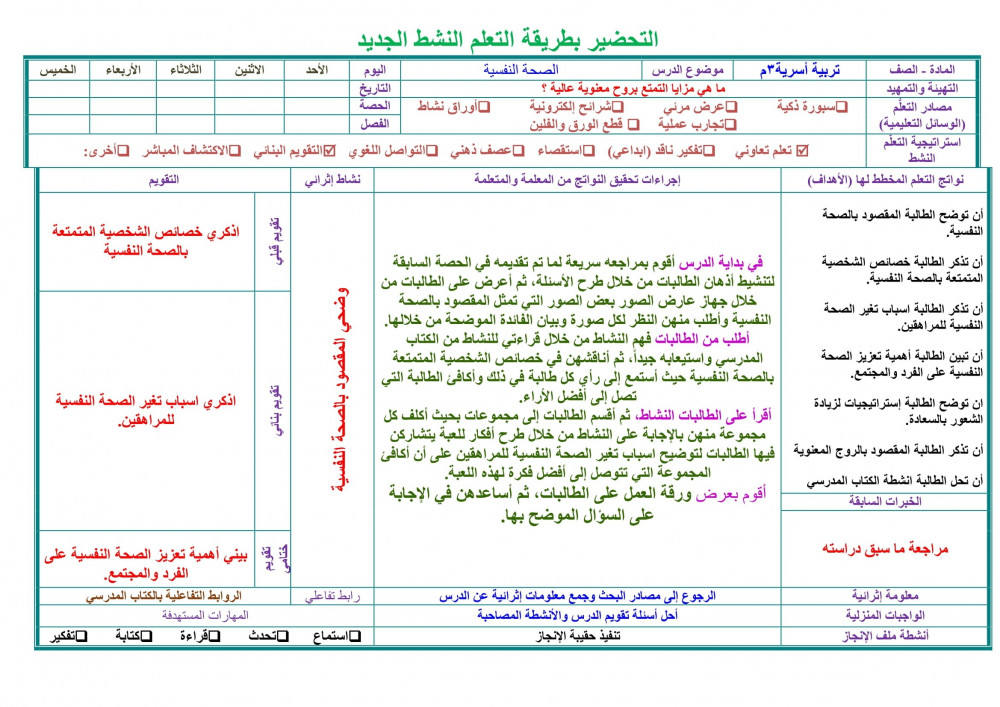 التحضير بطريقة التعلم النشط الجديد
المادة - الصف
تربية أسرية٣م
موضوع الدرس
الصحة النفسية
اليوم
الأحد
الاثنين
الثلاثاء
الأربعاء
الخميس
التهيئة والتمهيد
ما هي مزايا التمتع بروح معنوية عالية ؟
التاريخ
مصادر التعلّم
(الوسائل التعليمية)
❑سبورة ذكية ❑عرض مرئي ❑شرائح إلكترونية ❑أوراق نشاط
❑تجارب عملية ❑ قطع الورق والفلين
الحصة
الفصل
استراتيجية التعلّم
النشط
☑ تعلم تعاوني ❑تفكير ناقد (ابداعي) ❑استقصاء ❑عصف ذهني ❑التواصل اللغوي ☑التقويم البنائي ❑الاكتشاف المباشر ❑أخرى:
نواتج التعلم المخطط لها (الأهداف)
إجراءات تحقيق النواتج من المعلمة والمتعلمة
نشاط إثرائي
التقويم
أن توضح الطالبة المقصود بالصحة
النفسية.
أن تذكر الطالبة خصائص الشخصية
المتمتعة بالصحة النفسية.
أن تذكر الطالبة اسباب تغير الصحة
النفسية للمراهقين.
أن تبين الطالبة أهمية تعزيز الصحة
النفسية على الفرد والمجتمع.
ان توضح الطالبة إستراتيجيات لزيادة
الشعور بالسعادة.
أن تذكر الطالبة المقصود بالروح المعنوية
أن تحل الطالبة انشطة الكتاب المدرسي
الخبرات السابقة
مراجعة ما سبق دراسته
في بداية الدرس أقوم بمراجعه سريعة لما تم تقديمه في الحصة السابقة
لتنشيط أذهان الطالبات من خلال طرح الأسئلة، ثم أعرض على الطالبات من
خلال جهاز عارض الصور بعض الصور التي تمثل المقصود بالصحة
النفسية وأطلب منهن النظر لكل صورة وبيان الفائدة الموضحة من خلالها.
أطلب من الطالبات فهم النشاط من خلال قراءتي للنشاط من الكتاب
المدرسي واستيعابه جيداً، ثم أناقشهن في خصائص الشخصية المتمتعة
بالصحة النفسية حيث أستمع إلى رأي كل طالبة في ذلك وأكافئ الطالبة التي
تصل إلى أفضل الأراء.
أقرأ على الطالبات النشاط، ثم أقسم الطالبات إلى مجموعات بحيث أكلف كل
مجموعة منهن بالإجابة على النشاط من خلال طرح أفكار للعبة يتشاركن
فيها الطالبات لتوضيح اسباب تغير الصحة النفسية للمراهقين على أن أكافئ
المجموعة التي تتوصل إلى أفضل فكرة لهذه اللعبة.
أقوم بعرض ورقة العمل على الطالبات، ثم أساعدهن في الإجابة
على السؤال الموضح بها.
وضحي المقصود بالصحة النفسية
تقويم قبلي
اذكري خصائص الشخصية المتمتعة
بالصحة النفسية
تقويم بنائي
اذكري اسباب تغير الصحة النفسية
للمراهقين.
تقويم
ختامي
بيني أهمية تعزيز الصحة النفسية على
الفرد والمجتمع.
معلومة إثرائية
الرجوع إلى مصادر البحث وجمع معلومات إثرائية عن الدرس
رابط تفاعلي
الروابط التفاعلية بالكتاب المدرسي
الواجبات المنزلية
أحل أسئلة تقويم الدرس والأنشطة المصاحبة
المهارات المستهدفة
أنشطة ملف الإنجاز
تنفيذ حقيبة الإنجاز
❑استماع ❑تحدث ❑قراءة ❑كتابة ❑تفكير